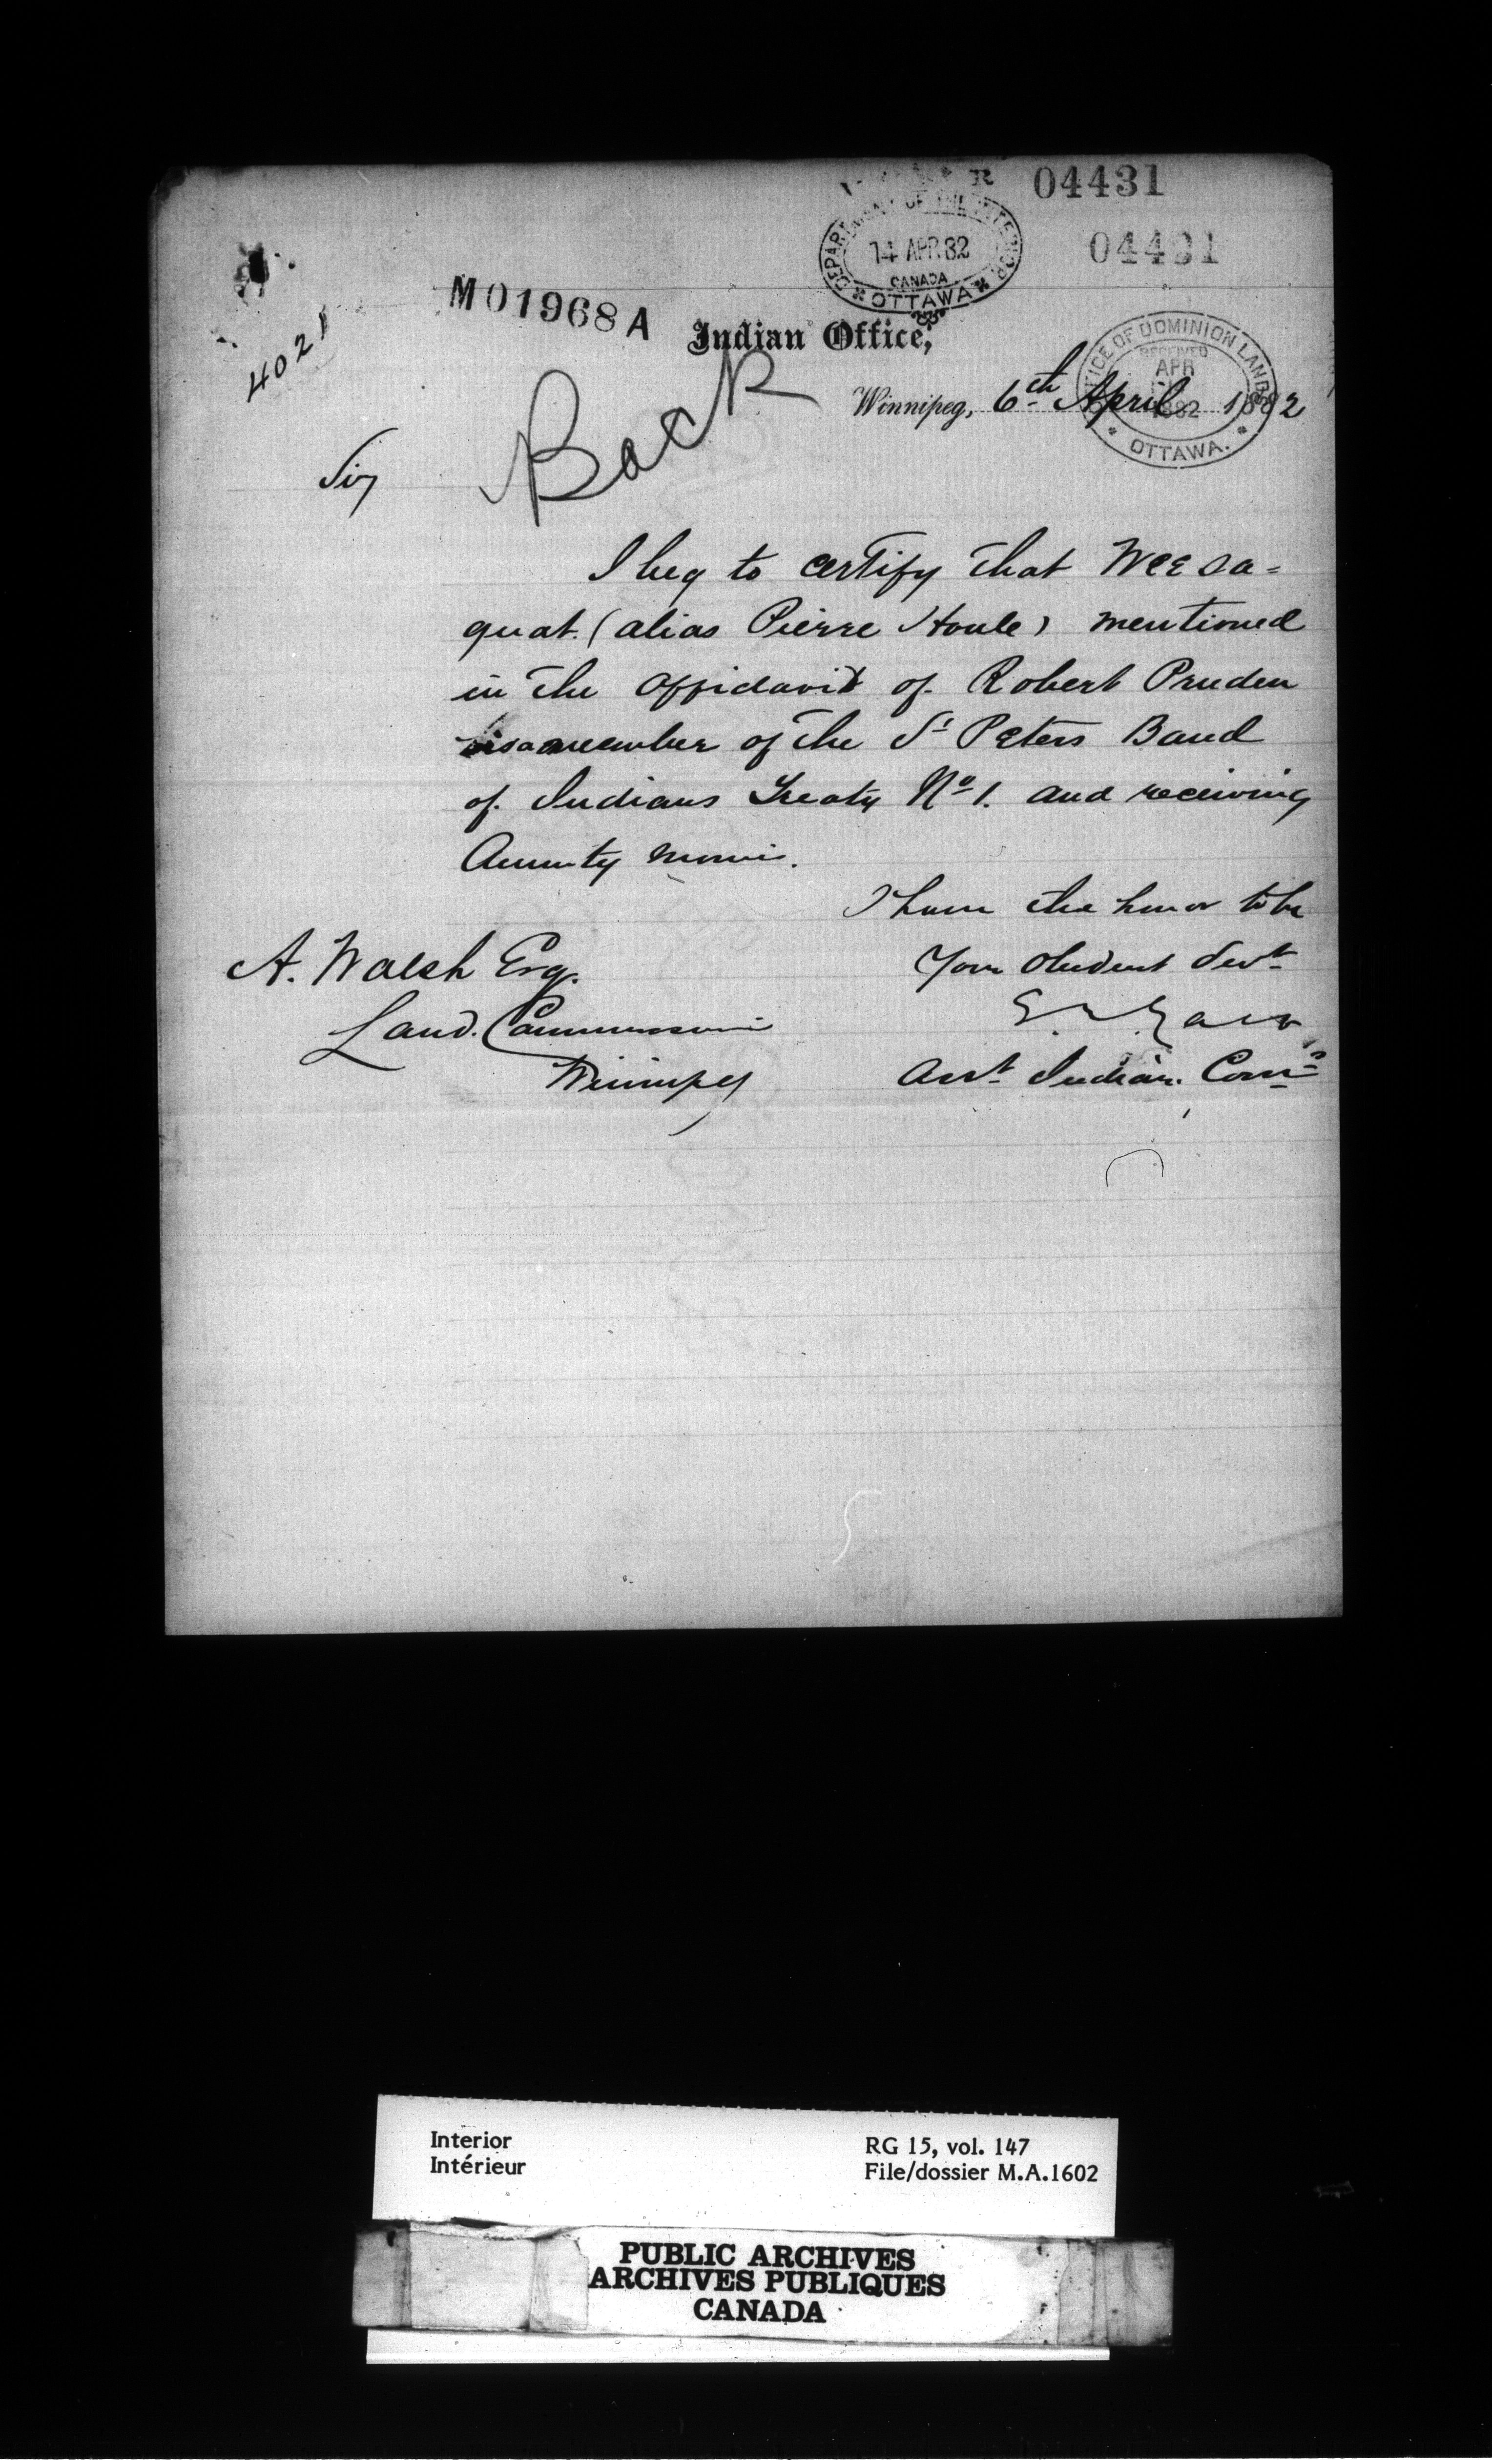 04431
DEPARTMENT OF THE INTERIOR
14 APR 82
CANADA
OTTAWA
04421
M01968A
4021
Indian Office,
OFFICE OF DOMINION LANDS
RECEIVED
APR
1882
OTTAWA.
Winnipeg, 6th April 1882
Back
Sir
I beg to certify that Weesa=
quat (alias Pierre Houle) mentioned
in the affidavit of Robert Pruden
is a member of the St Peters Band
of Indians Treaty No 1. and receiving
Annuity monies.
I have the honor to be
Your Obedient Servt
A. Walsh Esq.
Land Commissioner
Winnipeg
Asst Indian Comr
Interior
Intérieur
RG 15, vol. 147
File/dossier M.A.1602
PUBLIC ARCHIVES
ARCHIVES PUBLIQUES
CANADA